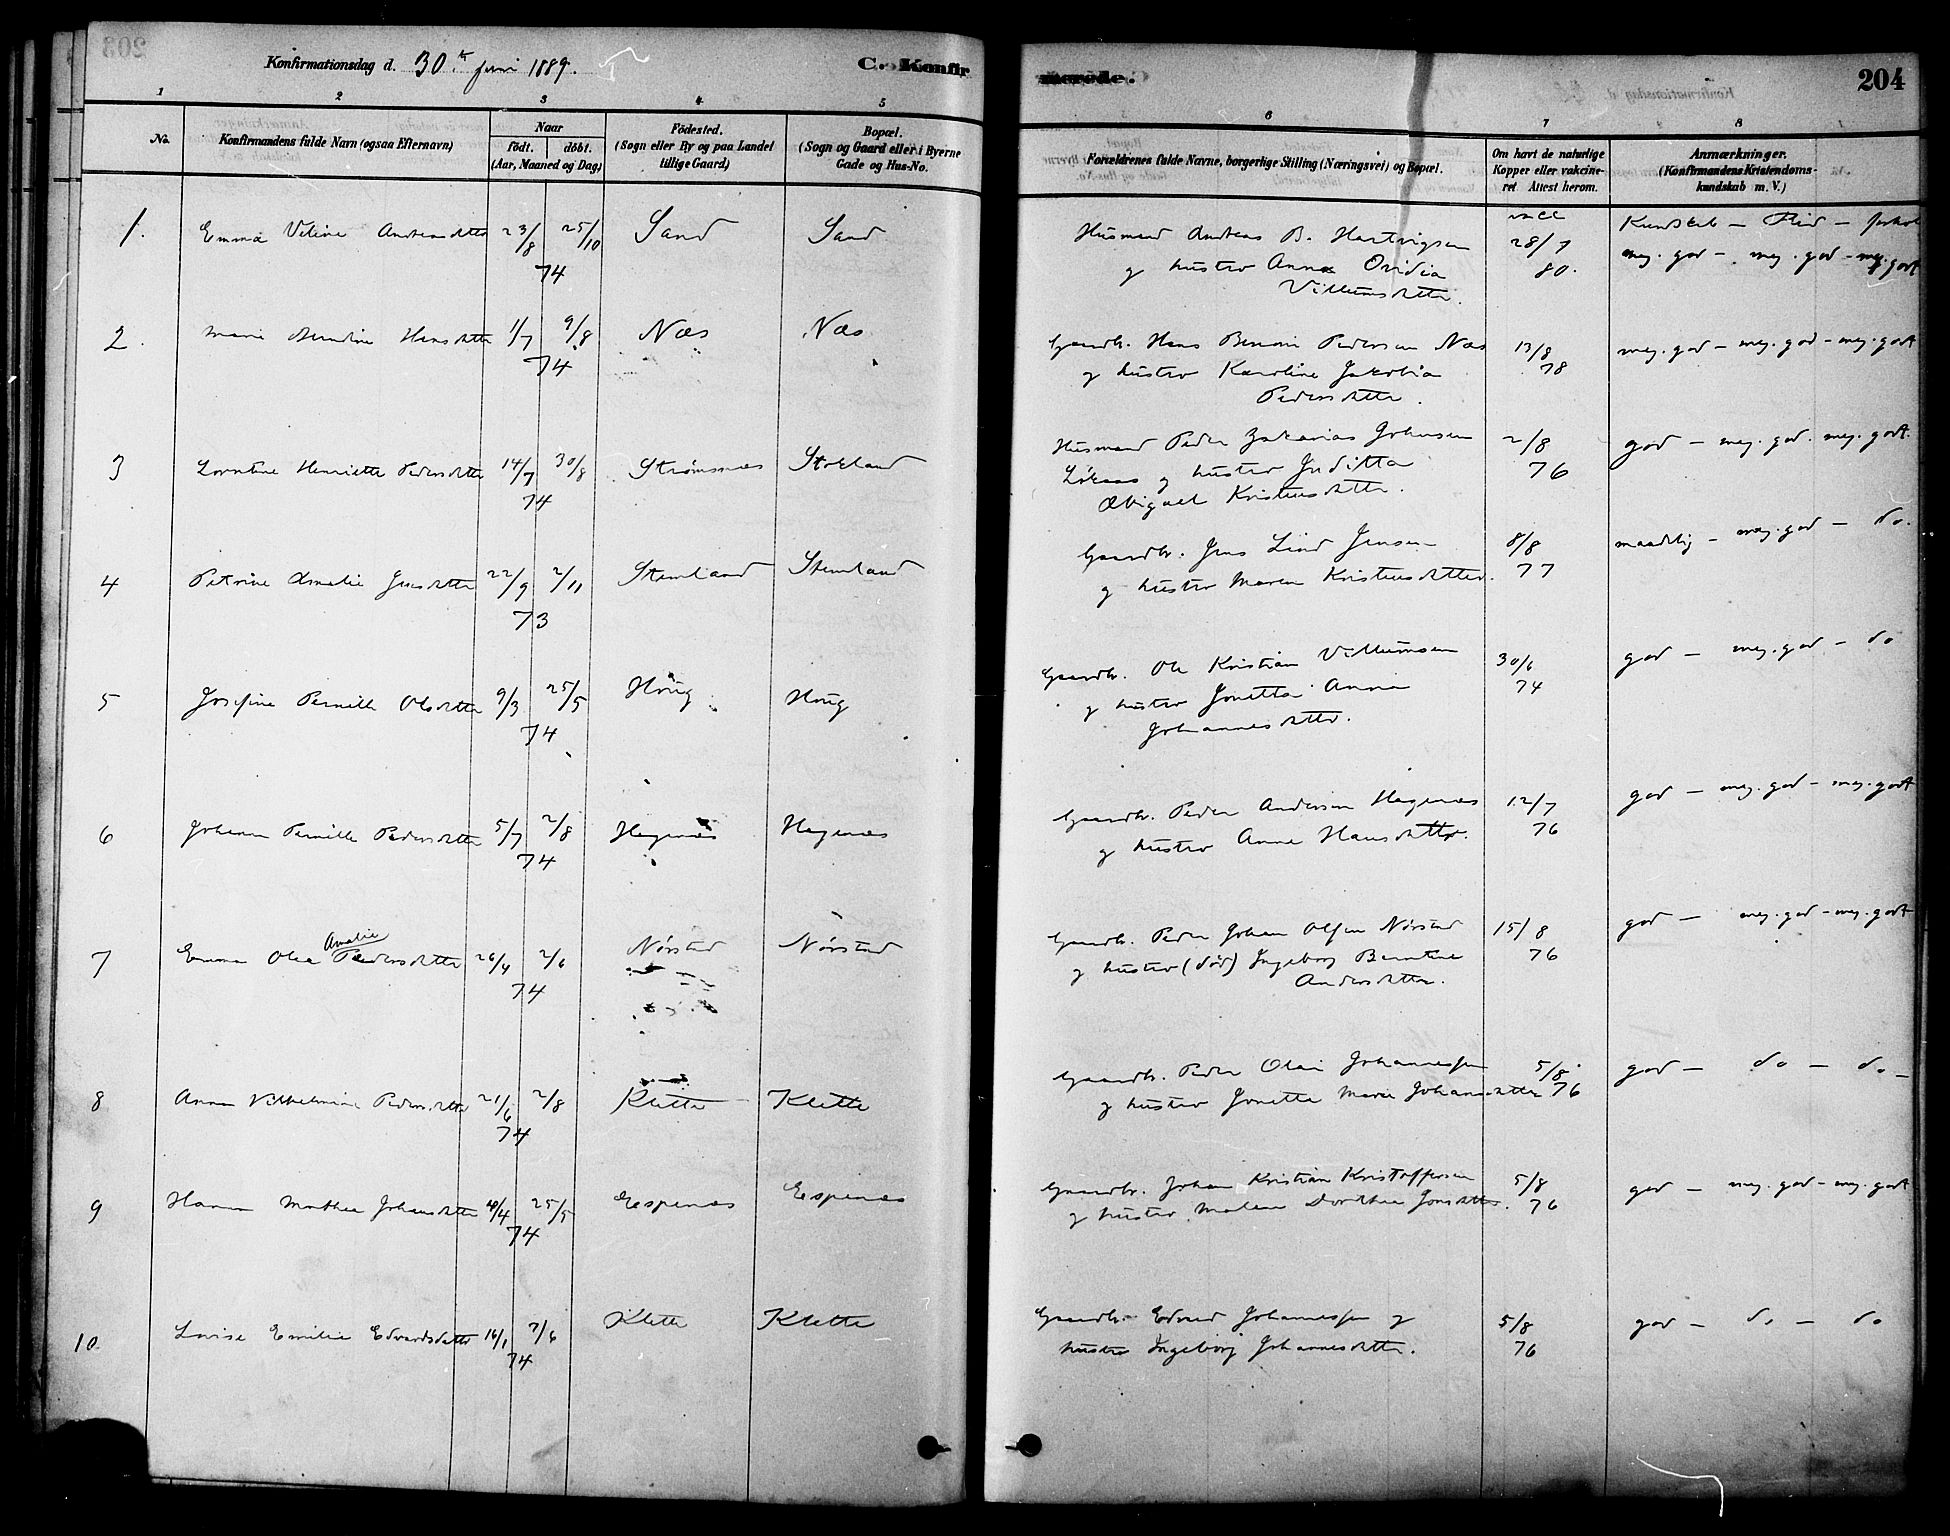 Konfirmationsdag d. 30.te juni 1889.
C. Konfirmerede.
204
1 2 3 4 5 6 7 8
No.
Konfirmandens fulde Navn (ogsaa Efternavn)
Naar
födt. döbt.
(Aar, Maaned og Dag)
Födested.
(Sogn eller By og paa Landet
tillige Gaard)
Bopæl.
(Sogn og Gaard eller i Byerne
Gade og Hus-No.
Forældrenes fulde Navne, borgerlige Stilling (Næringsvei) og Bopæl.
Om havt de naturlige
Kopper eller vakcine-
ret Attest herom.
Anmærkninger.
(Konfirmandens Kristendoms-
kundskab m. V.)
1. Emma Veline Andreasdatter 23/8 25/10 Sand Sand
74
Husmand Andreas B. Hartvigsen
og hustru Anna Ovidia
Villumsdatter.
vacc
28/7
80.
Kundskab – Flid – forhold
meg. god – meg. god – meg. godt
2. Marie Berndine Hansdatter 1/7 9/8 Næs Næs
74
Gaardbr. Hans Benoni Pedersen Næs
og hustru Karoline Jakobia
Pedersdatter.
13/8
78
meg. god – meg. god – meg. godt
3 Lorntine Henriette Pedersdatter 14/7 30/8 Strømsnæs Stokland
74
Husmand Peder Zakarias Johnsen
og hustru Juditta
Abigael Kristensdatter.
2/8
76
god – meg. god. meg. godt.
4 Petrine Amalie Jensdatter 22/9 2/11 Stemland Stemland
73
Gaardbr. Jens Lind Jensen
og hustru Maren Kristensdatter.
8/8
77
maadelig – meg. god – do.
5 Josefine Pernille Olsdatter 9/3 25/5 Houg Houg
74
Gaardbr. Ole Kristian Villumsen
og hustru Jonetta Anna
Johannesdatter.
30/6
74
god – meg. god – do
6 Johanna Pernille Pedersdatter 5/7 2/8 Hagenæs Hagenæs
74
Gaardbr. Peder Andersen Hagenæs
og hustru Anne Hansdatter.
12/7
76
god – meg. god – meg. godt
7 Emma Olea Amalie Pedersdatter 26/4 2/6 Nørstad Nørstad
74
Gaardbr. Peder Johan Olsen Nørstad
og hustru (død) Ingeborg Berntine
Andersdatter.
15/8
76
god – meg. god – meg. godt
8 Anna Vilhelmine Pedersdatter 21/6 2/8 Klette Klette
74
Gaardbr. Peder Olai Johannessen
og hustru Jonette Marie Johansdatter
5/8
76
god – do – do –
9 Hanna Mathea Johansdatter 10/4 25/5 Espenæs Espenæs
74
Gaardbr. Johan Kristian Kristoffersen
og hustru Malene Dorthea Jonsdatter.
5/8
76
god – meg. god – meg. godt
10 Lovise Emilie Edvardsdatter 16/1 2/6 Klette Klette
74
Gaardbr. Edvard Johannessen og
hustru Ingeborg Johannesdatter.
5/8
76
god – do – do